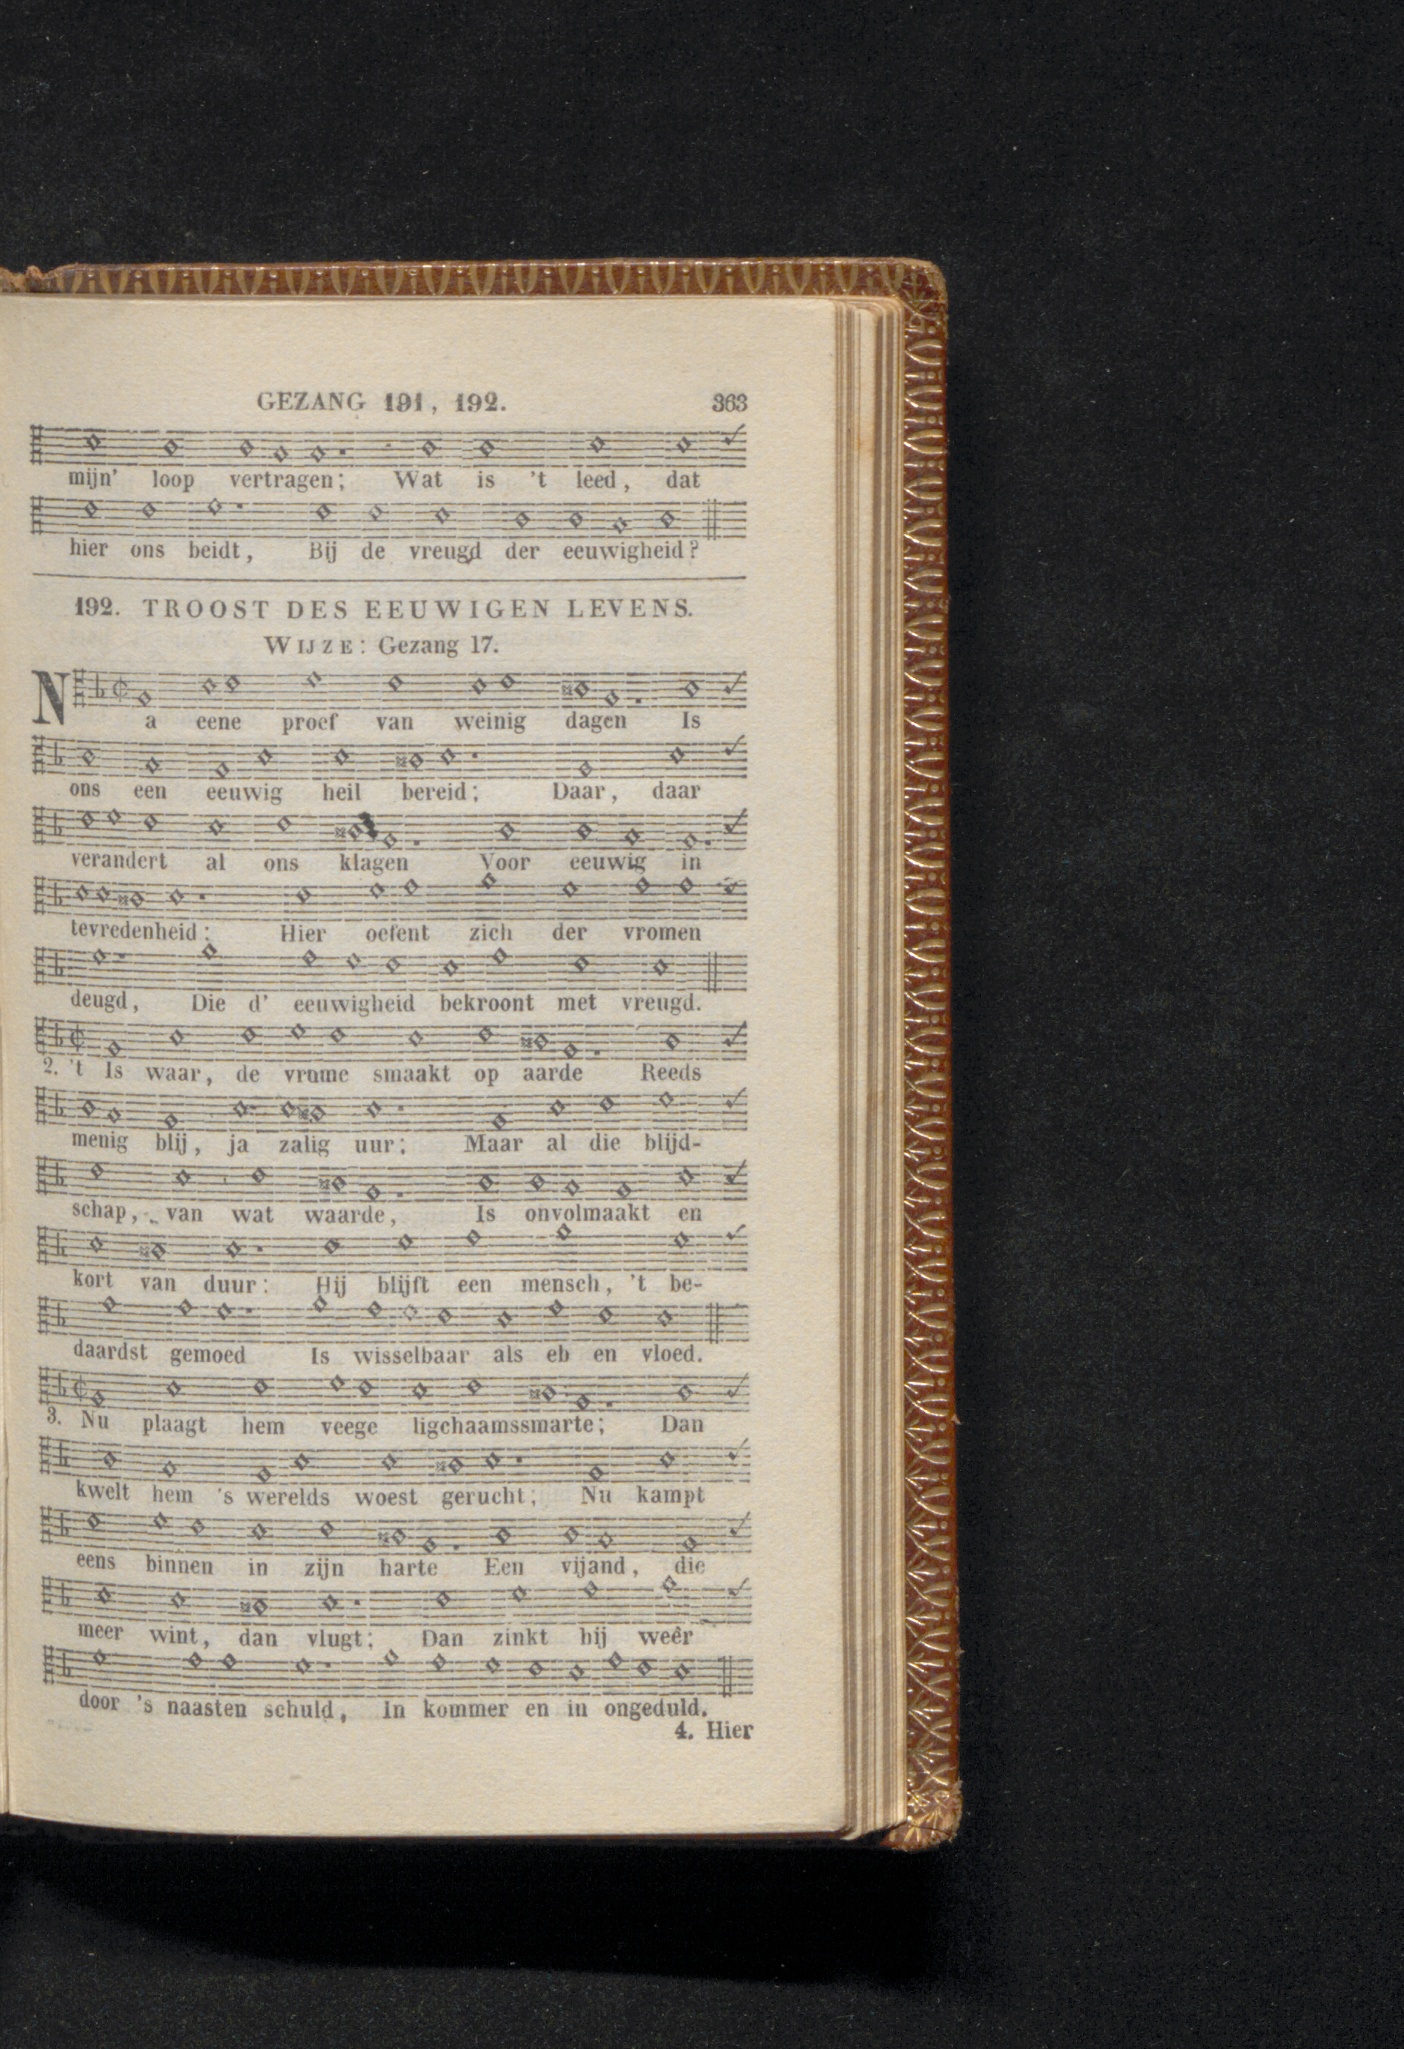 GEZANG 191, 192. 363
mijn' loop vertragen; Wat is 't leed, dat
hier ons beidt, Bij de vreugd der eeuwigheid?
192. TROOST DES EEUWIGEN LEVENS.
WIJZE: Gezang 17.
Na eene proef van weinig dagen Is
ons een eeuwig heil bereid; Daar, daar
verandert al ons klagen Voor eeuwig in
tevredenheid: Hier oefent zich der vromen
deugd, Die d' eeuwigheid bekroont met vreugd.
2. 't Is waar, de vrome smaakt op aarde Reeds
menig blij, ja zalig uur; Maar al die blijd-
schap, van wat waarde, Is onvolmaakt en
kort van duur: Hij blijft een mensch, 't be-
daardst gemoed Is wisselbaar als eb en vloed.
3. Nu plaagt hem veege ligchaamssmarte; Dan
kwelt hem 's werelds woest gerucht; Nu kampt
eens binnen in zijn harte Een vijand, die
meer wint, dan vlugt; Dan zinkt hij weêr
door 's naasten schuld, In kommer en in ongeduld.
4. Hier